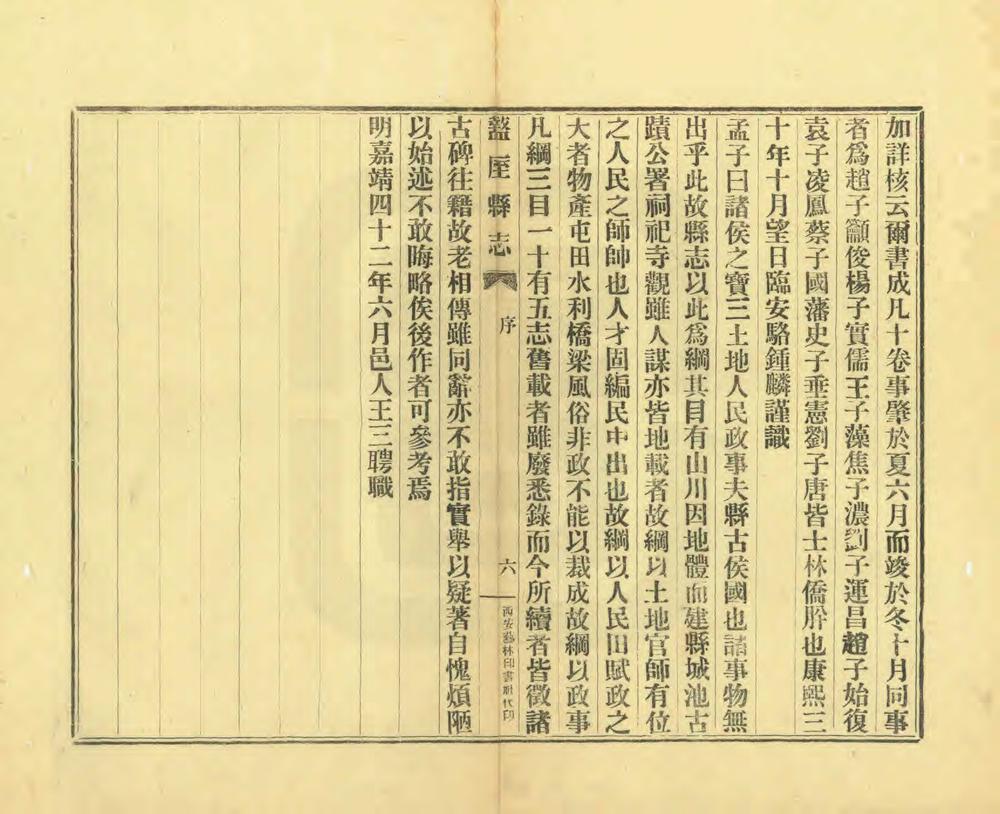 加詳核云爾書成凡十卷事肇於夏六月而竣於冬十月同事
者爲趙子籲俊楊子實儒王子藻焦子濃劉子運昌趙子始復
袁子凌鳳蔡子國藩史子垂憲劉子唐皆士林僑肸也康熙三
十年十月望日臨安駱鍾麟謹識
孟子曰諸侯之寶三土地人民政事夫縣古侯國也諸事物無
出乎此故縣志以此爲綱其目有山川因地體而建縣城池古
蹟公署祠祀寺觀雖人謀亦皆地載者故綱以土地官師有位
之人民之師帥也人才固編民中出也故綱以人民田賦政之
大者物產屯田水利橋梁風俗非政不能以裁成故綱以政事
凡綱三目一十有五志舊載者雖廢悉錄而今所續者皆徵諸
盩厔縣志
序
六
西安藝林印書社代印
古碑往籍故老相傳雖同辭亦不敢指實舉以疑著自愧煩陋
以始述不敢晦略俟後作者可參考焉
明嘉靖四十二年六月邑人王三聘職